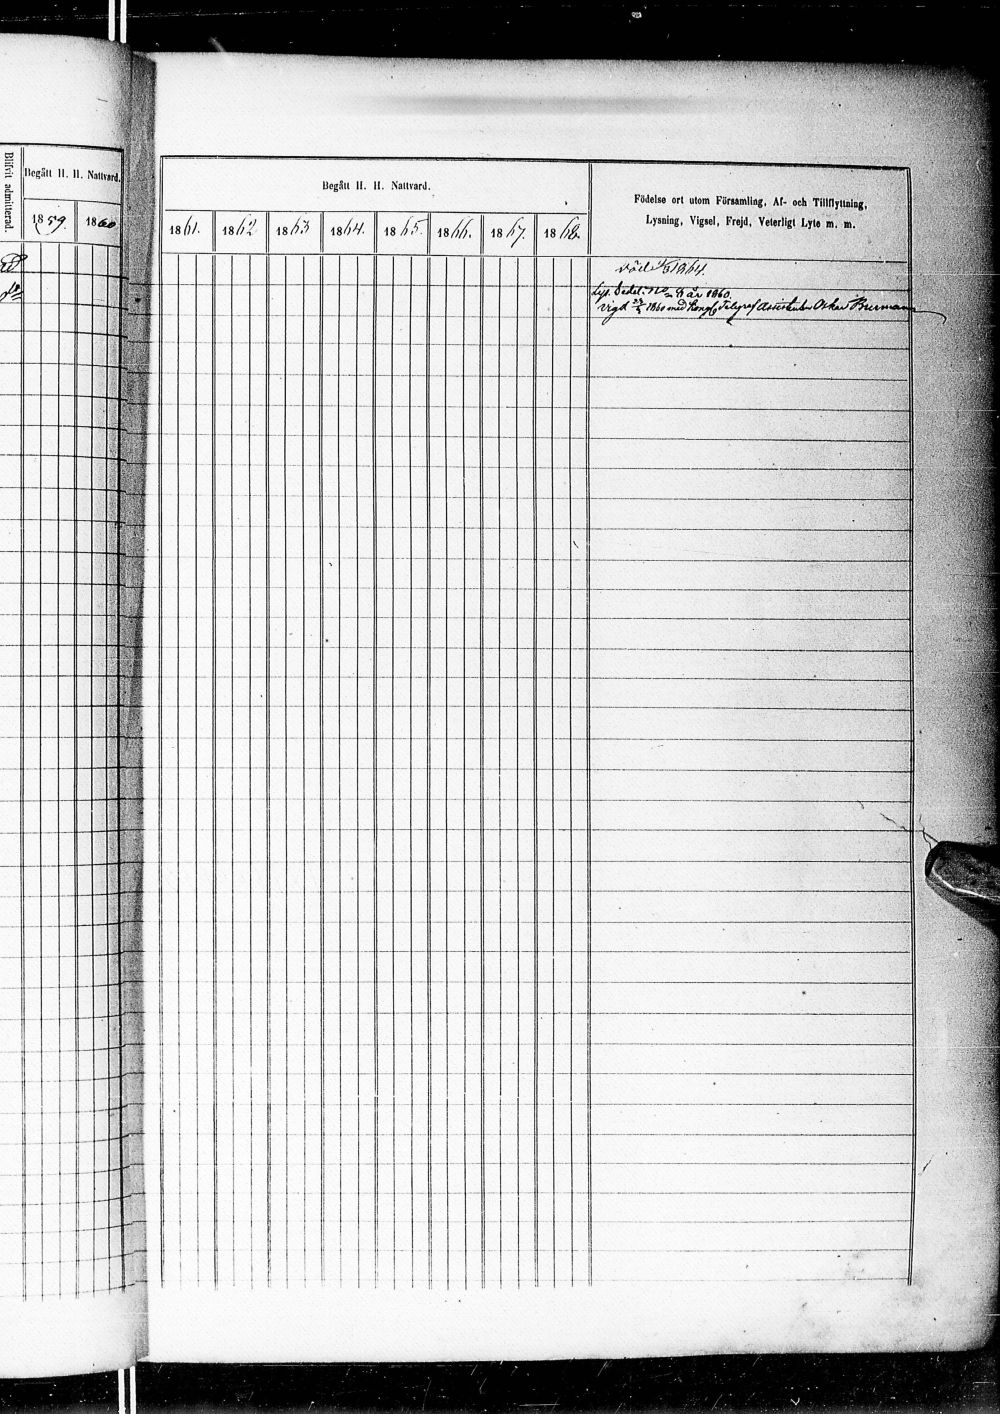 Blifvit admitterad.
Begått H. H. Nattvard.
1859. 1860
Begått H. H. Nattvard.
1861. 1862 1863 1864. 1865. 1866. 1867. 1868.
Födelse ort utom Församling, Af- och Tillflyttning,
Lysning, Vigsel, Frejd, Veterligt Lyte m. m.
död 1864.
år 1860.
vigd 1860 med Kongl. Telegraf Assistenten Oskar Burman